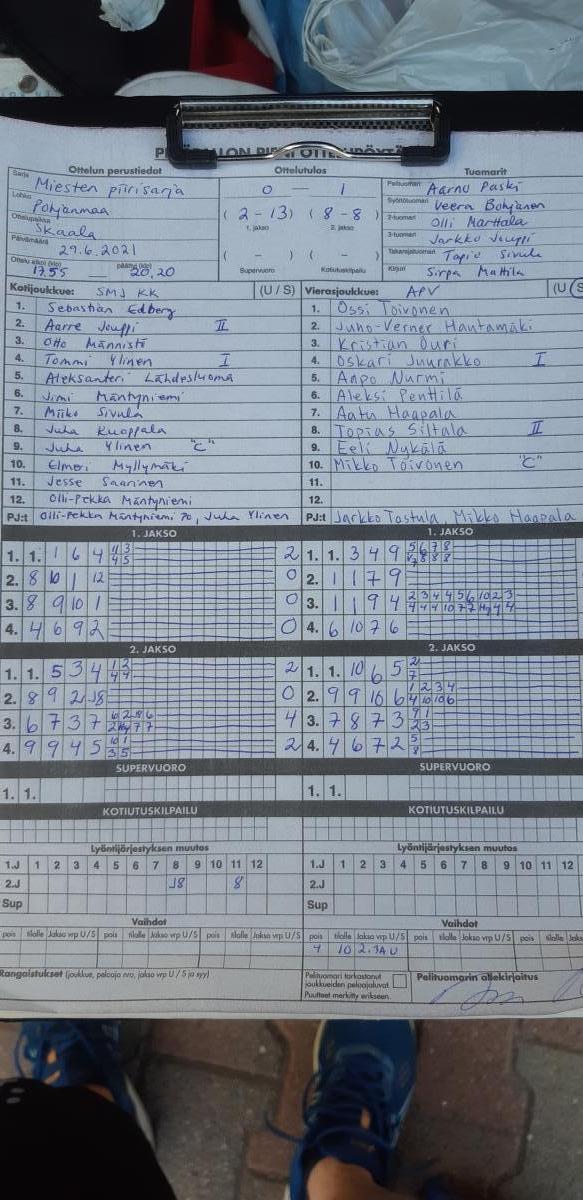 Ottelun perustiedot
Sarja Miesten piirisarja
Lohko Pohjanmaa
Ottelupaikka Skaala
Päivämäärä 29.6.2021
Ottelu alkoi (klo) 17.55 päättyi (klo) 20,20
Ottelutulos
0 — 1
(2 - 13) (8 - 8)
1. jakso 2. jakso
( - ) ( - )
Supervuoro Kotiutuskilpailu
Tuomarit
Pelituomari Aarno Paski
Syöttötuomari Veera Bohjanen
2-tuomari Olli Marttala
3-tuomari Jarkko Jouppi
Takarajatuomari Tapio Sivula
Kirjuri Sirpa Mattila
Kotijoukkue: SMJ KK (U / S)
1. Sebastian Edberg
2. Aarre Jouppi II
3. Otto Männistö
4. Tommi Ylinen I
5. Aleksanteri Lähdesluoma
6. Jimi Mäntyniemi
7. Miiko Sivula
8. Juha Kuoppala
9. Juha Ylinen "C"
10. Elmeri Myllymäki
11. Jesse Saarinen
12. Olli-Pekka Mäntyniemi
PJ:t Olli-Pekka Mäntyniemi 70, Juha Ylinen
Vierasjoukkue: APV (U / S
1. Ossi Toivonen
2. Juho-Verner Hautamäki
3. Kristian Ouri
4. Oskari Juurakko I
5. Aapo Nurmi
6. Aleksi Penttilä
7. Aatu Haapala
8. Topias Siltala II
9. Eeli Nykälä
10. Mikko Toivonen "C"
11.
12.
PJ:t Jarkko Tostula, Mikko Haapala
1. JAKSO
1. 1. 1 6 4 2
2. 8 10 1 12 0
3. 8 9 10 1 0
4. 4 6 9 2 0
2. JAKSO
1. 1. 5 3 4 2
2. 8 9 2 J8 0
3. 6 7 3 7 4
4. 9 9 4 5 2
SUPERVUORO
1. 1.
KOTIUTUSKILPAILU
Lyöntijärjestyksen muutos
1.J 1 2 3 4 5 6 7 8 9 10 11 12
2.J J8 8
Sup
Vaihdot
pois tilalle Jakso vrp U/S pois tilalle Jakso vrp U/S pois tilalle Jakso vrp U/S
Rangaistukset (joukkue, pelaaja nro, jakso vrp U / S ja syy)
1. JAKSO
1. 1. 3 4 9
2. 1 1 7 9
3. 1 1 9 4
4. 6 10 7 6
2. JAKSO
1. 1. 10 6 5
2. 9 9 10 6
3. 7 8 7 3
4. 4 6 7 2
SUPERVUORO
1. 1.
KOTIUTUSKILPAILU
Lyöntijärjestyksen muutos
1.J 1 2 3 4 5 6 7 8 9 10 11 12
2.J
Sup
Vaihdot
pois tilalle Jakso vrp U/S pois tilalle Jakso vrp U/S pois tilalle
4 10 2.3A U
Pelituomari tarkastanut joukkueiden pelaajaluvat.
Puutteet merkitty erikseen.
Pelituomarin allekirjoitus